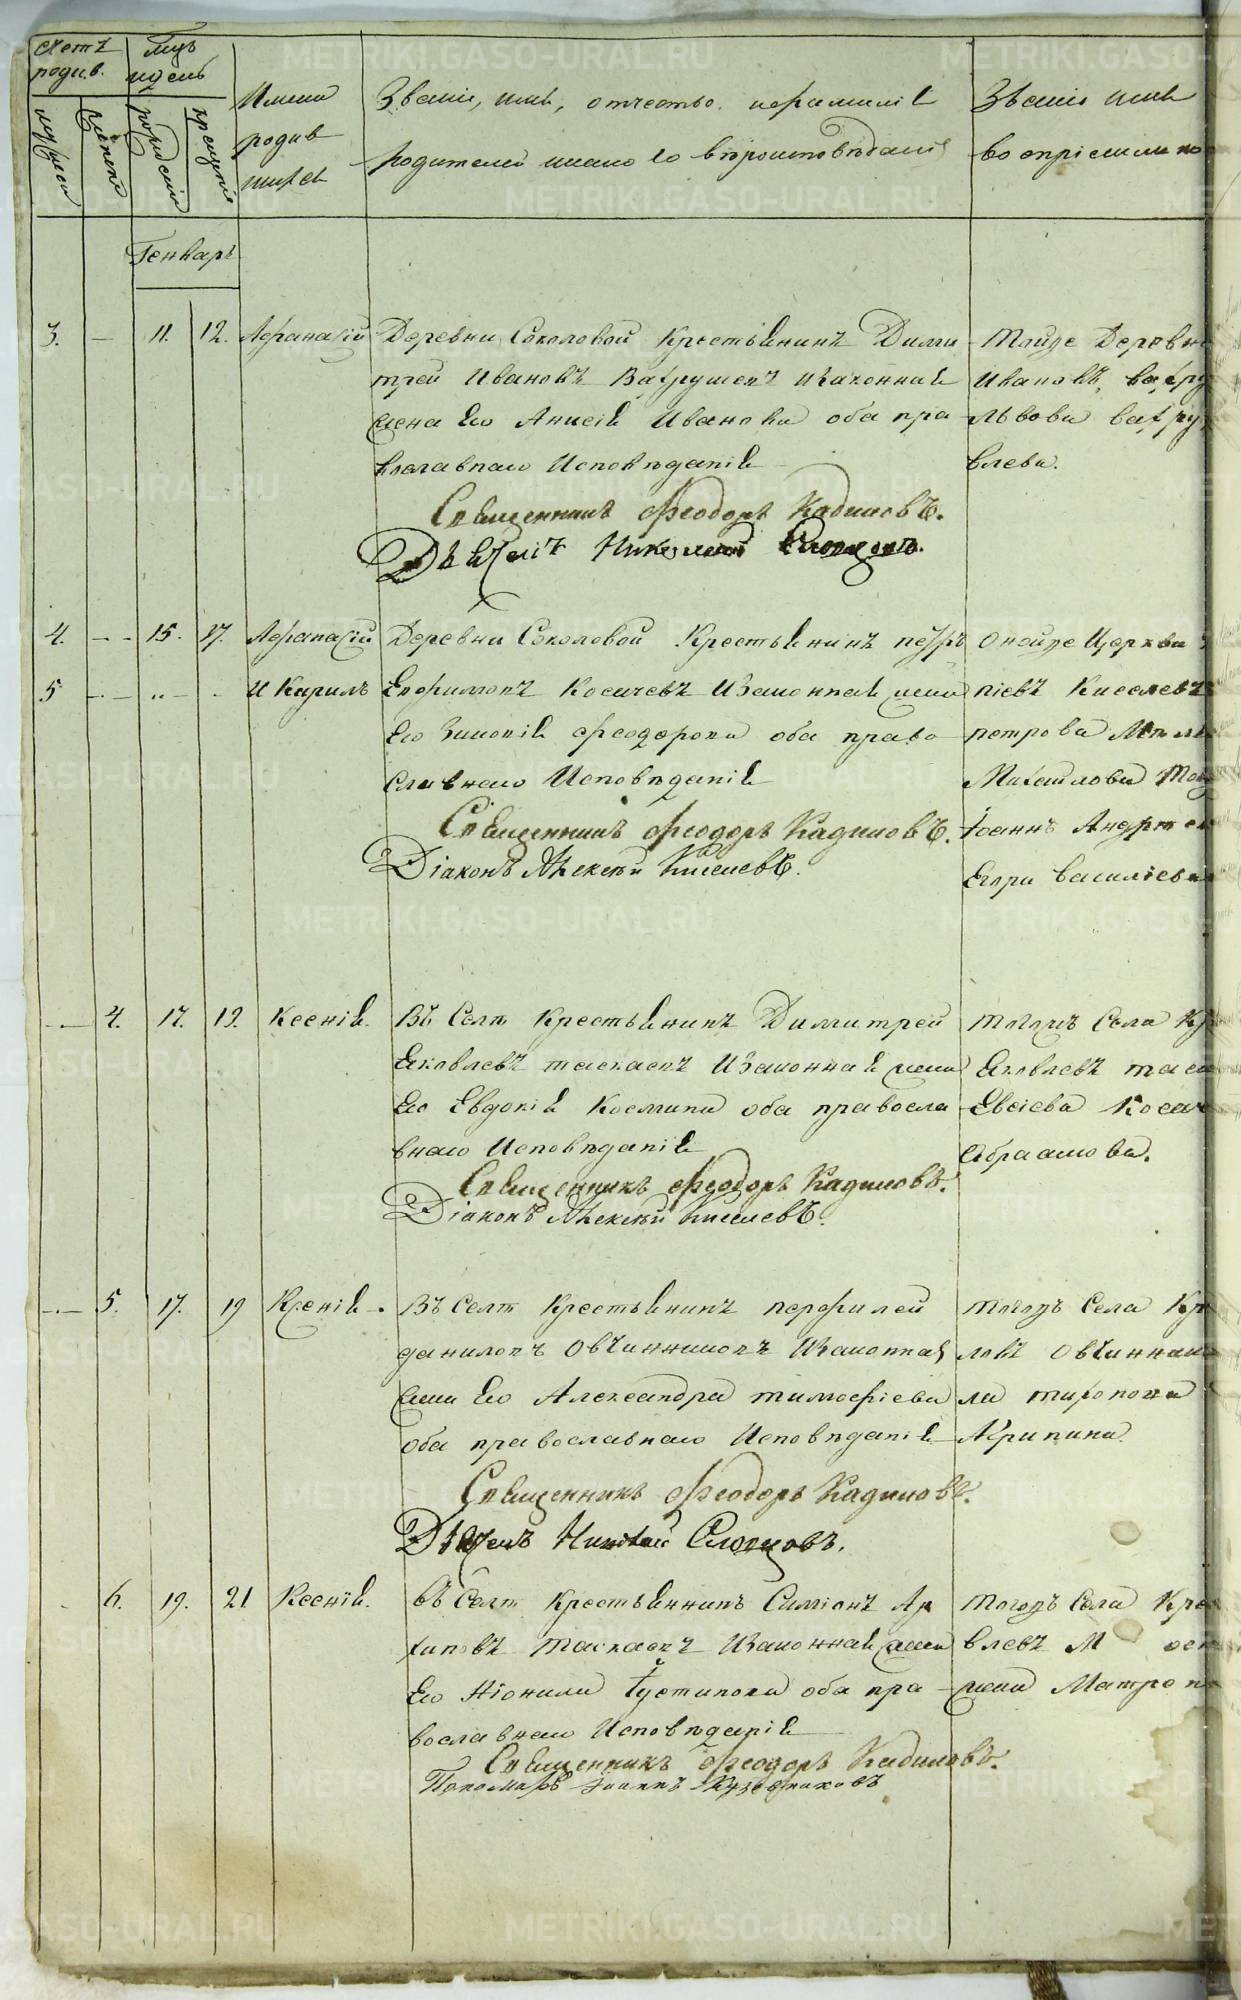 Счетъ родив.
мужеска
женска
Мцъ и день
рожденія
крещенія
Имена
родив
шихся
Званіе, имя, отчество, и фамилія
родителей и какого вѣроисповѣданія
Званіе имя
воспріемнико
Генварь
3. — 11. 12. Афанасій
Деревни Соколовой Крестьянинъ Дими
трей Ивановъ Вахрушевъ и законная
жена Его Анисія Иванова оба пра
вославнаго Исповѣданія
Священникъ Феодоръ Кадиловъ.
Дьячекъ Николай Слопцовъ.
Тойже Деревни
Ивановъ Вахру
Львова Вахру
влева.
4. — 15. 17. Афанасій
5 — И Кирилъ
Деревни Соколовой Крестьянинъ петръ
Евфимовъ Косачевъ И законная жена
Его Зиновія Феодорова оба право
славнаго Исповѣданія
Священникъ Феодоръ Кадиловъ.
Діаконъ Алексѣй Киселевъ.
Онойже Церкви
ніевъ Киселевъ
петрова
Михаилова
Іоаннъ Андрее
Егора Василіева
— 4. 17. 19. Ксенія.
Въ Селѣ Крестьянинъ Димитрей
Яковлевъ таскаевъ И законная жена
Его Евдокія Космина оба правосла
внаго Исповѣданія
Священникъ Феодоръ Кадиловъ.
Діаконъ Алексѣй Киселевъ.
тогожъ Села Кр
Яковлевъ таска
Евсіева Косач
Абраамова.
— 5. 17. 19 Ксенія.
Въ Селѣ Крестьянинъ перфилей
даниловъ Овчинниковъ И законная
жена Его Александра тимофіева
оба православнаго Исповѣданія
Священникъ Феодоръ Кадиловъ.
Дьячекъ Николай Слопцовъ.
тогожъ Села Кре
ловъ Овчинник
ла тихонова
Агрипина
6. 19. 21 Ксенія.
Въ Селѣ Крестьянинъ Симіонъ Ар
хиповъ Таскаевъ И законная жена
Его Ніонила Іустинова оба пра
вославнаго Исповѣданія
Священникъ Феодоръ Кадиловъ.
Пономарь Іоаннъ Кузовниковъ
Тогожъ Села Кре
влевъ М
жена Матрон
METRIKI.GASO-URAL.RU